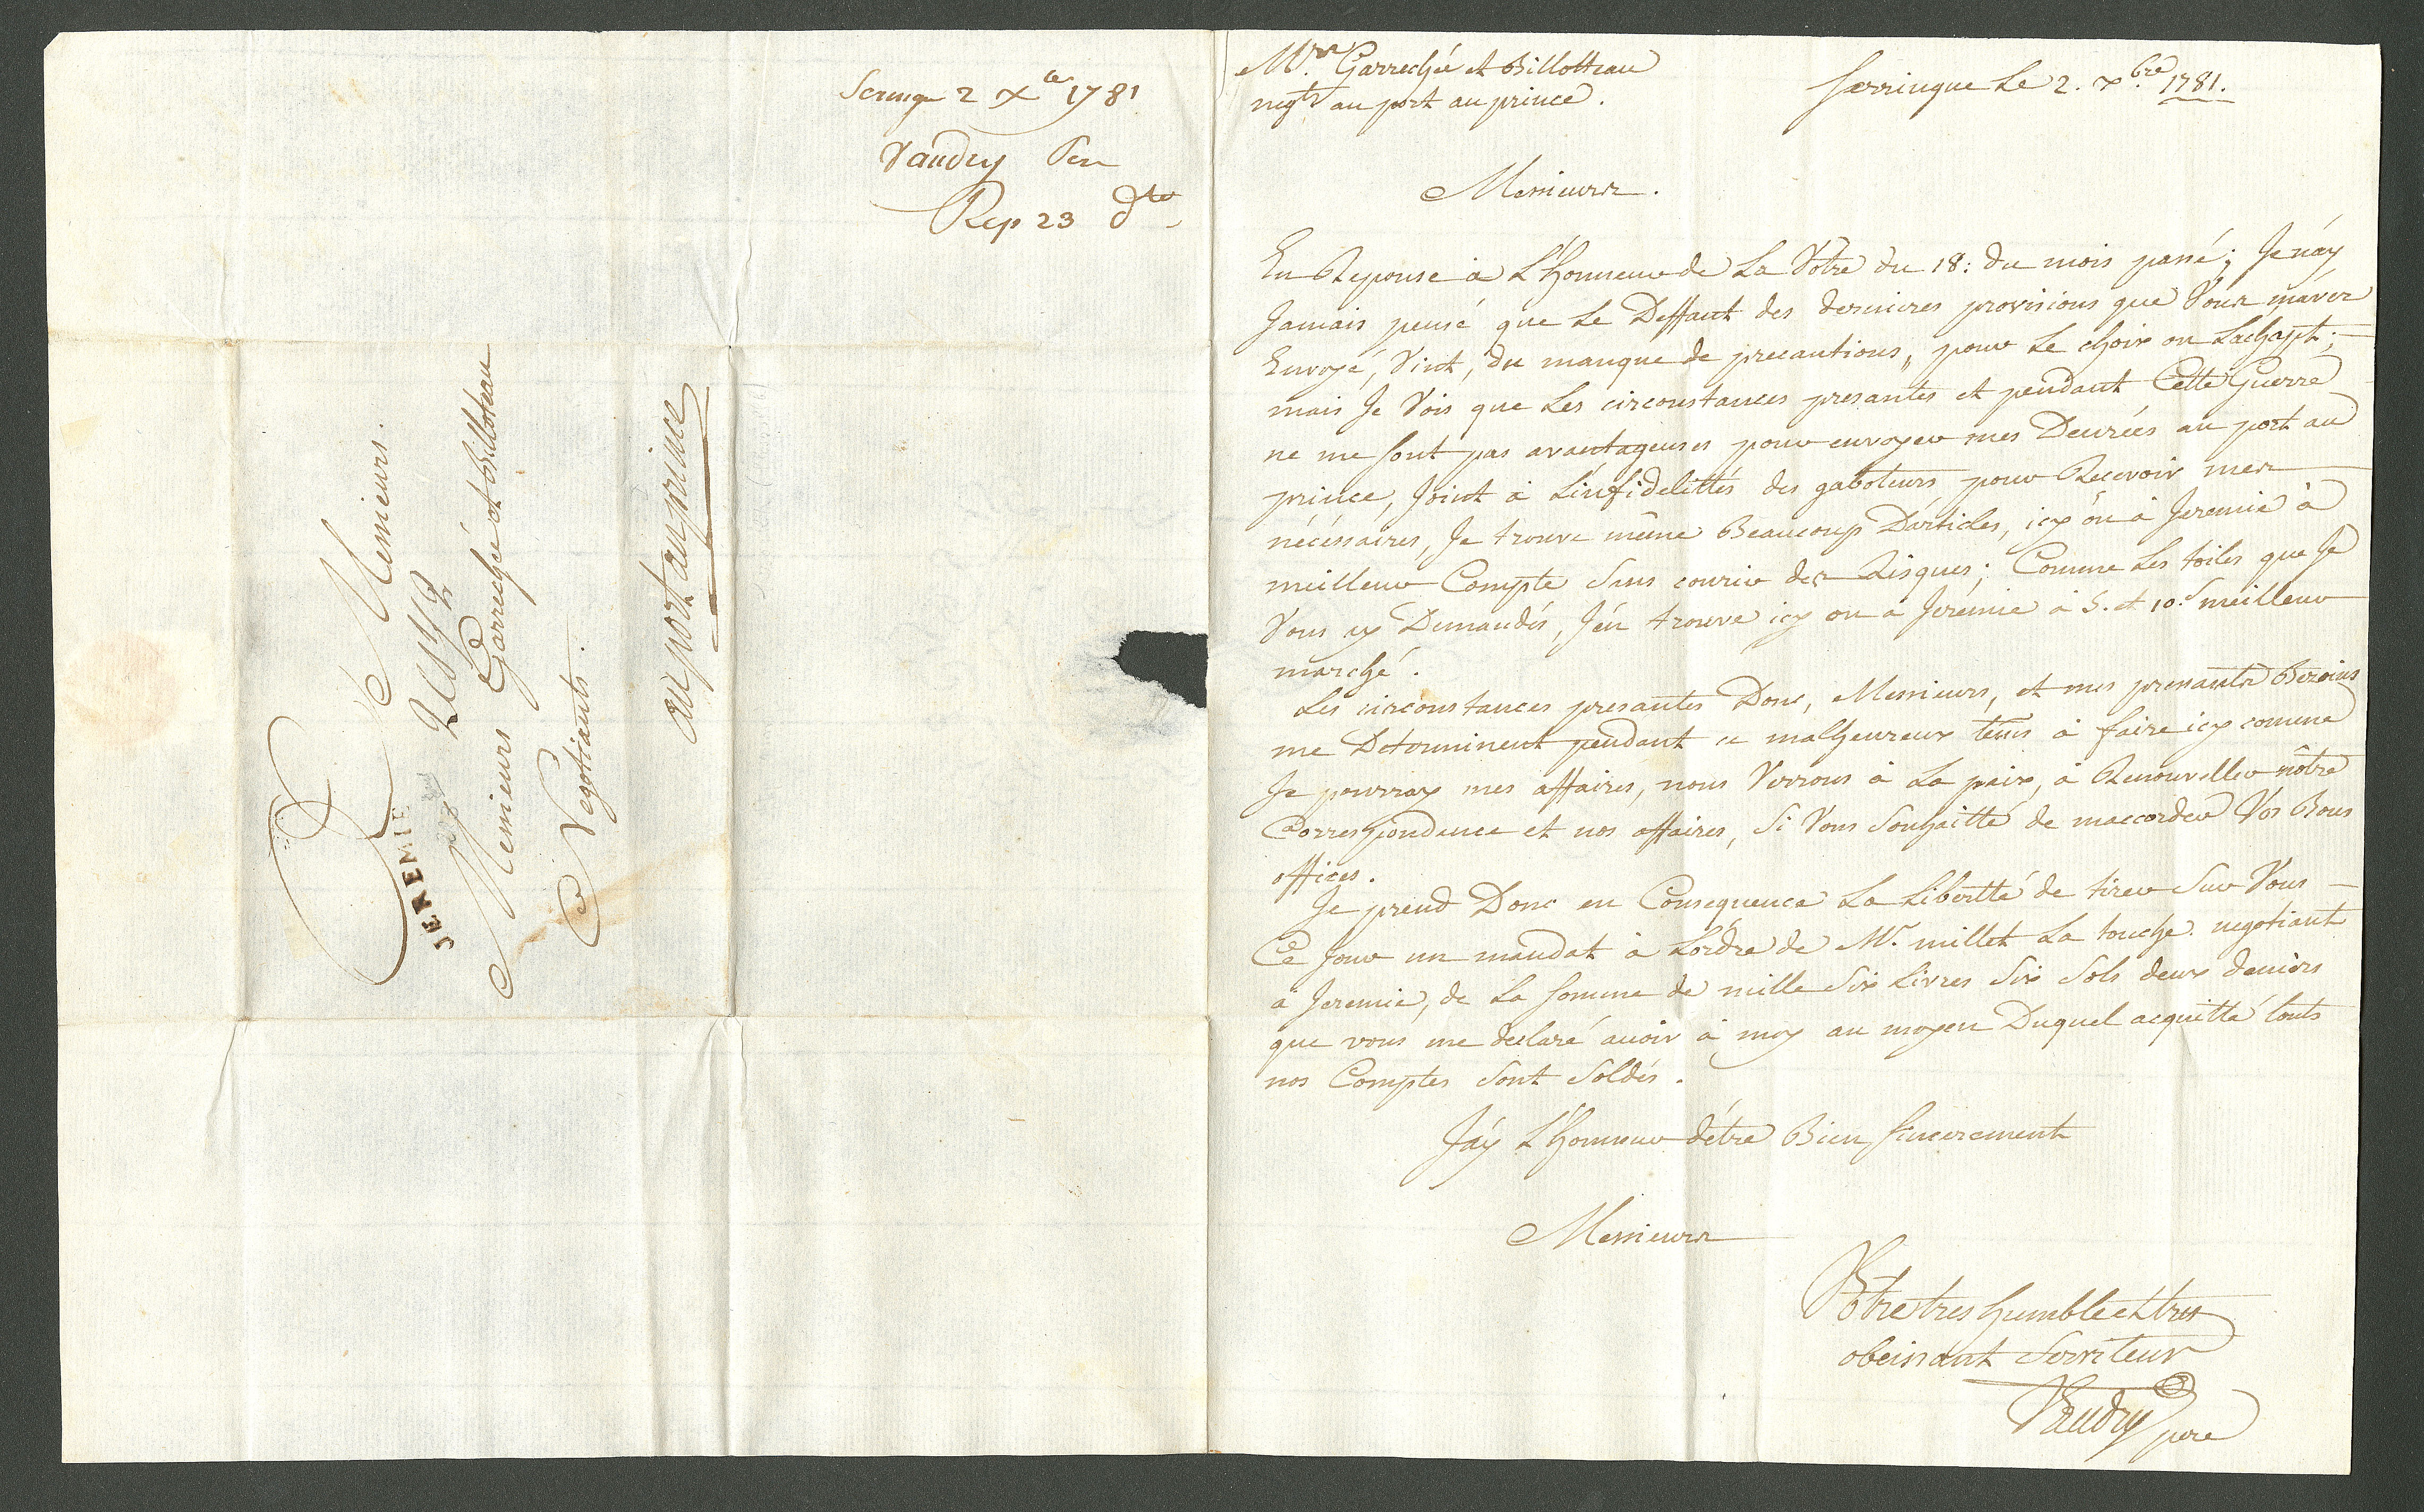 Seringue 2 Xbre 1781
Vaudry Pere
Rep 23 dto
Messieurs.
JEREMIE
Messieurs Garrechée et Billoteau
Negotiants.
au port au prince
Mrs. Garrechée et Billotteau
negts au port au prince.
Serringue Le 2. xbre. 1781.
Messieurs.
En Reponse a L'Honneur de La Vôtre du 18: du mois passé; Je náy
Jamais pensé que Le Deffaut des dernieres provisions que Vous m'avez
Envoyé, Vint, du manque de precautions, pour Le choix ou Lachapt;
mais Je Vois que Les circonstances presantes et pendant Cette Guerre
ne me sont pas avantageuses pour envoyer mes Denrées au port au
prince, Joint à L'infidelittés des gaboteurs pour Recevoir mes
nécéssaires, Je trouve même Beaucoup D'articles, icy ou à Jeremie à
meilleur Compte Sans courir des Risques; Comme Les toiles que Je
Vous ay Demandés, J'én trouve icy ou a Jerémie à 5. et 10.s meilleur
marché.
Les circonstances presantes Donc, Messieurs, et mes pressants Bezoins
me Determinent pendant ce malheureux tems à faire icy comme
Je pourray mes affaires, nous Verrons à La paix, à Renouveller nôtre
Correspondance et nos affaires, Si Vous Souhaitté de maccorder Vos Bons
offices.
Je prend Donc en Consequence La Libertté de tirer Sur Vous
Ce Jour un mandat à Lordre de Mr. millet La touche negotiant
a Jeremie, de La somme de mille Six Livres Six Sols deux deniers
que vous me declaré avoir à moy au moyen Duquel acquitté touts
nos Comptes Sont Soldés.
J'áy L'Honneur d'être Bien Sincerement
Messieurs
Vôtre tres humble et tres
obeissant Serviteur
Vaudry pere